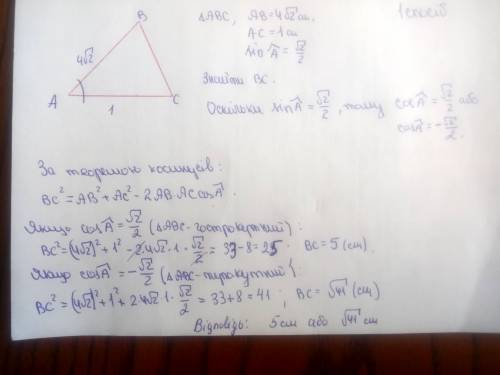 B
△ABC, AB=4√2 см.
1 спосіб
AC=1 см
sin Â=√2/2
4√2
A
C
1
Знайти BC.
Оскільки sin Â=√2/2, тому cos Â=√2/2 або
cos Â=-√2/2.
За теоремою косинусів:
BC²=AB²+AC²-2AB·AC cos Â.
Якщо cos Â=√2/2 (△ABC-гострокутний):
BC²=(4√2)²+1²-2·4√2·1·√2/2=33-8=25 BC=5 (см).
Якщо cos Â=-√2/2 (△ABC-тупокутний):
BC²=(4√2)²+1²+2·4√2·1·√2/2=33+8=41; BC=√41 (см)
Відповідь: 5 см або √41 см